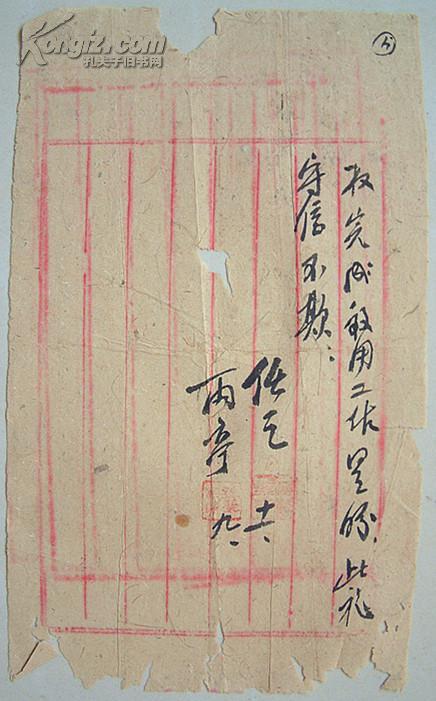 Kongfz.com
孔夫子旧书网
5
完成敌用工作是盼、此礼
守信不欺：
任之 十一、
丙 九、